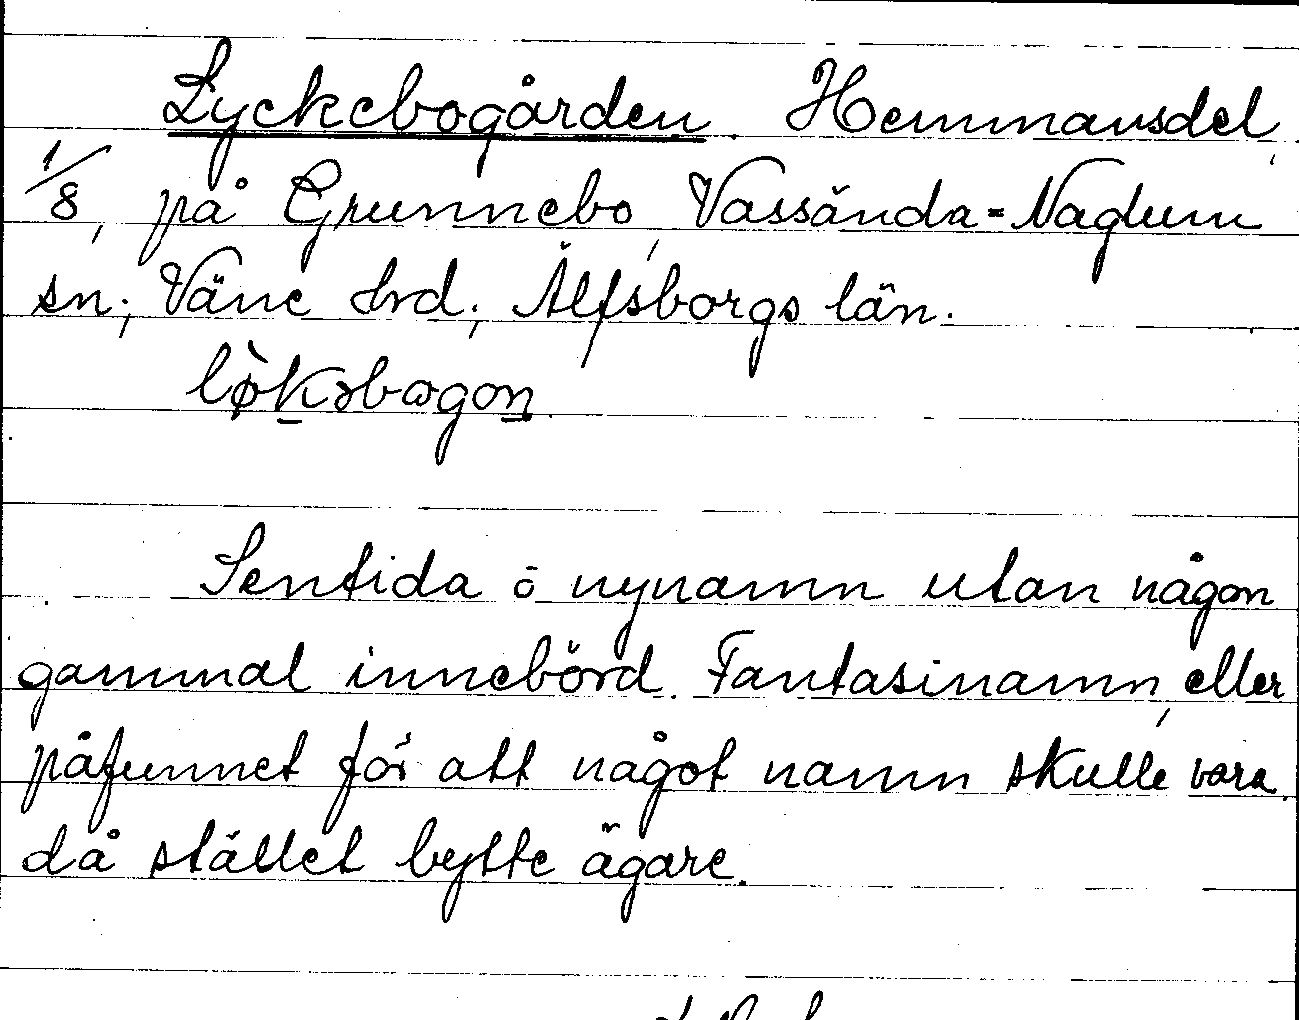 Lyckebogården. Hemmansdel,
1/8, på Grunnebo, Vassända-Naglum
sn; Väne hrd; Älfsborgs län.
lø̀kəbωgon.
Sentida o nynamn utan någon
gammal innebörd. Fantasinamn, eller
påfunnet för att något namn skulle vara.
då stället bytte ägare.